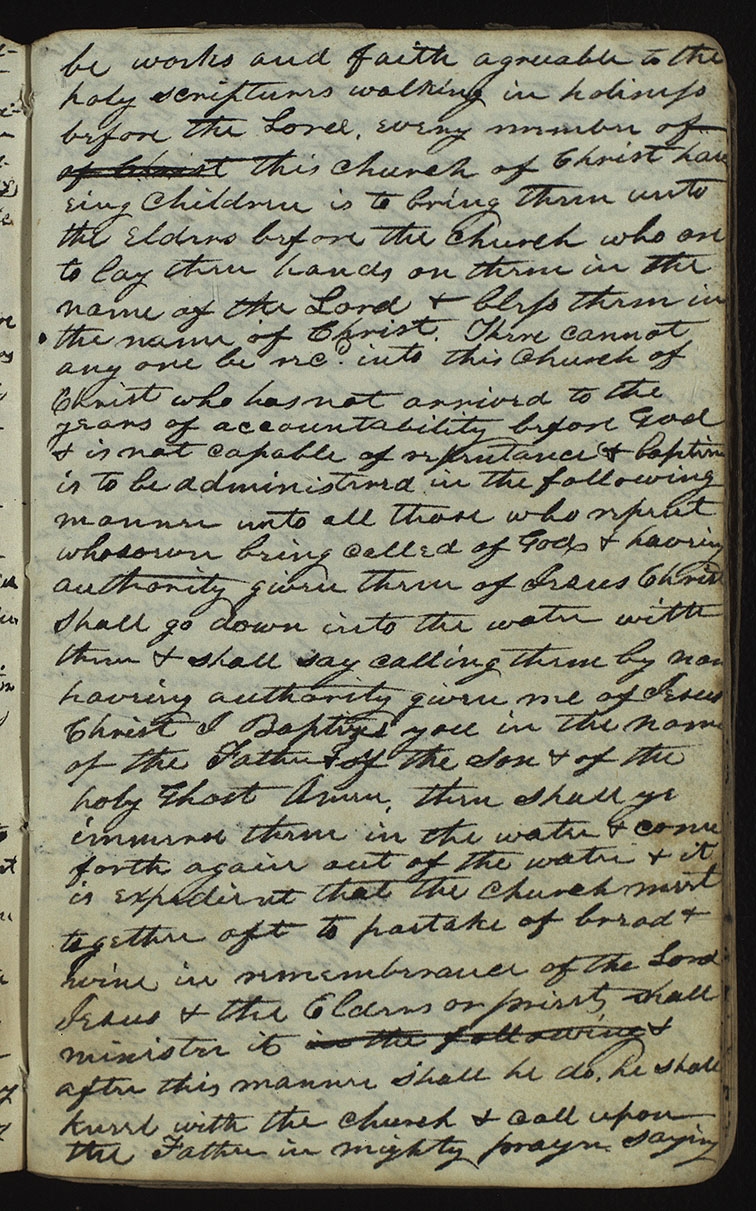 be works and faith agreuable to the
holy scriptures walking in holiness
before the Lord. every member of
of Christ this church of Christ hav
eing children is to bring them unto
the Elders before the church who are
to lay their hands on them in the
name of the Lord & bless them in
the name of Christ. There cannot
any one be recd. into this church of
Christ who has not arrived to the
years of accountability before God
& is not capable of repentance & baptism
is to be administered in the following
manner unto all those who repent
whosoever being called of God & having
authority given them of Jesus Christ
shall go down into the water with
them & shall say calling them by name
haveing authority given me of Jesus
Christ I Baptize you in the name
of the Father & of the Son & of the
holy Ghost Amen. then shall ye
immerse them in the water & come
forth again out of the water & it
is expedient that the church meet
together oft to partake of bread &
wine in rememberance of the Lord
Jesus & the Elders or priest shall
minister it in the following &
after this manner shall he do, he shall
kneel with the church & call upon
the Father in mighty prayer saying